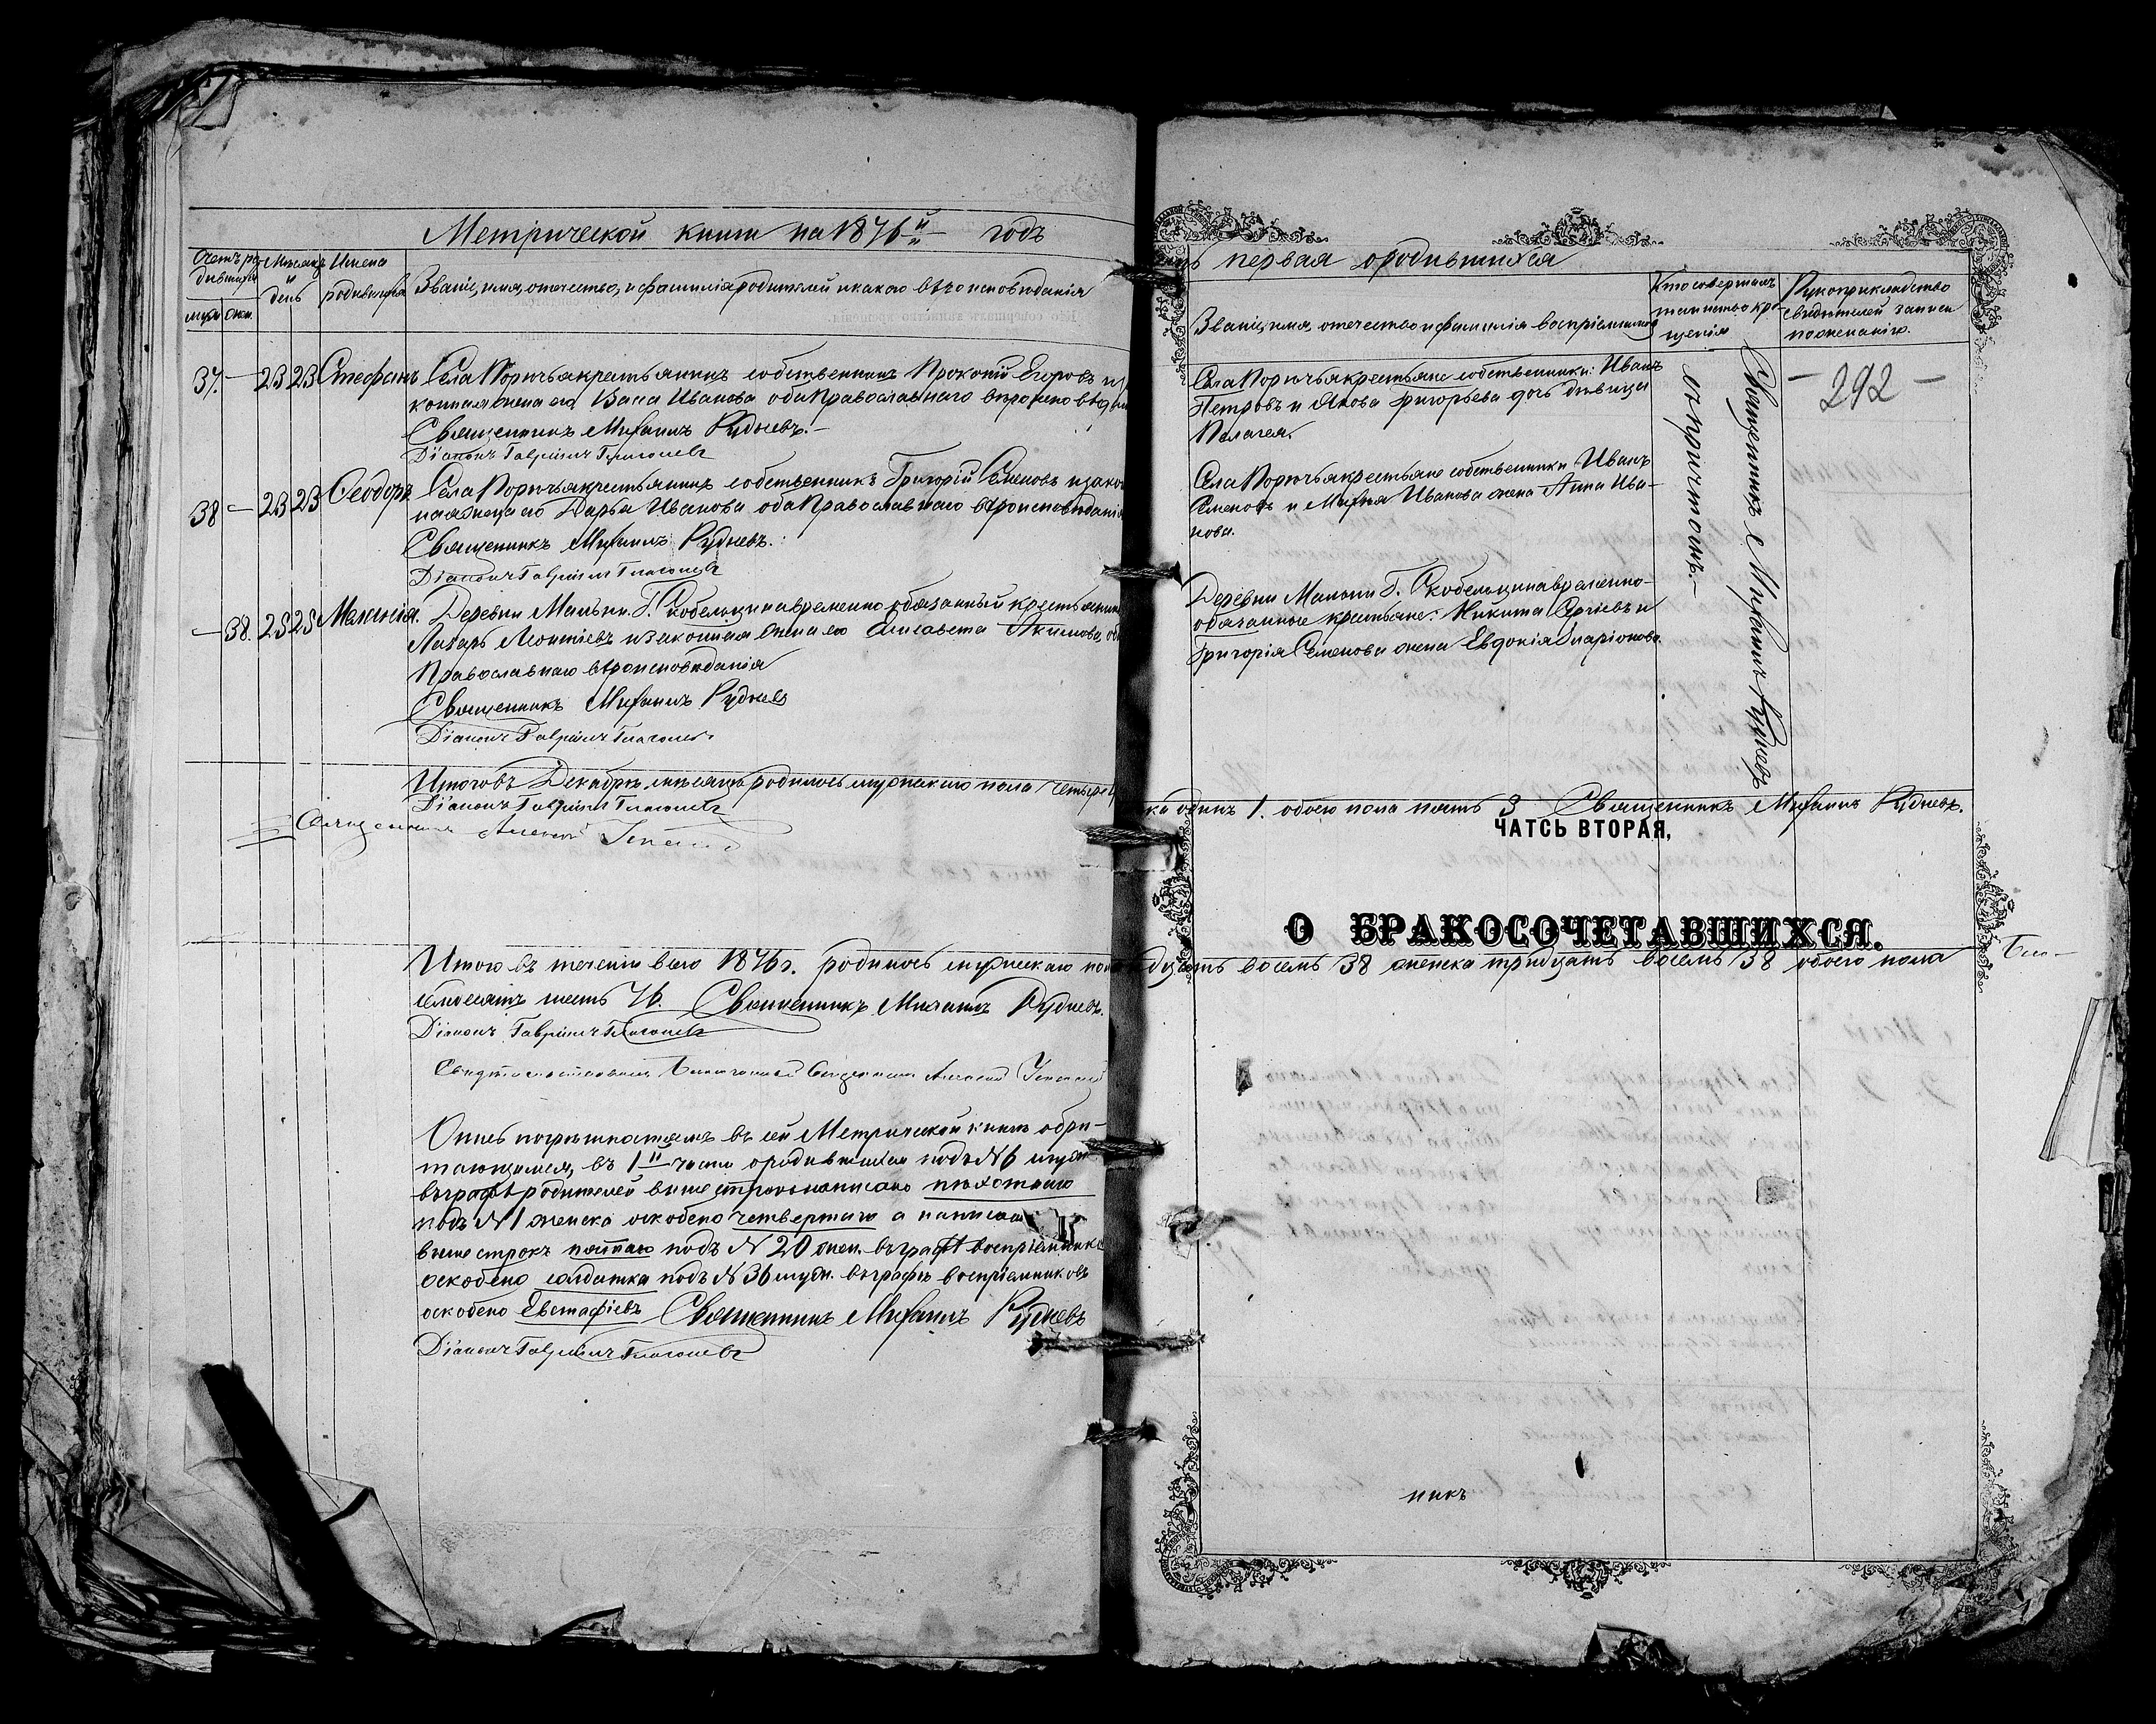 Метрической книги на 1876й годъ
Счетъ ро-
дившихся
муж. жен.
Мѣсяцъ
и
день
Имена
родившихся
Званіе, имя, отчество, и фамилія родителей и какого вѣроисповѣданія
37. — 23 23 Стефанъ Села Порѣчья крестьянинъ собственникъ Прокопій Егоровъ и за
конная жена его Иванова оба Православнаго вѣроисповѣдан
Священникъ Михаилъ Рудневъ.
Діаконъ Гавріилъ Глаголевъ
38 — 23 23 Ѳеодоръ Села Порѣчья крестьянинъ собственникъ Григорій Семеновъ и зако
ная жена его Дарья Иванова оба Православнаго вѣроисповѣданія
Священникъ Михаилъ Рудневъ.
Діаконъ Гавріилъ Глаголевъ
— 38. 25 25 Меланія. Деревни Г. Скобельцина временно обязанный крестьянинъ
Лазарь Леонтіевъ и законная жена его Елисавета Акимова, об
Православнаго вѣроисповѣданія
Священникъ Михаилъ Рудневъ
Діаконъ Гавріилъ Глаголевъ
Итого въ Декабрѣ мѣсяцѣ родилось мужескаго пола четыре
Діаконъ Гавріилъ Глаголевъ
Священникъ Алексій
Итого въ теченіи всего 1876 г. родилось мужескаго пол
семдесятъ шесть 76. Священникъ Михаилъ Рудневъ.
Діаконъ Гавріилъ Глаголевъ
Священникъ Алексій
Опись погрѣшностямъ въ сей Метрической книгѣ обрѣ-
тающимся, въ 1й части о родившихся подъ № 6 муж.
въ графѣ родителей выше строкъ написано пѣхотнаго
подъ № 1 женска оскоблено четвертаго а написано
выше строкъ пятаго подъ № 20 жен. въ графѣ воспріемника
оскоблено солдатка подъ № 36 муж. въ графѣ воспріемниковъ
оскоблено Евстафіевъ Священникъ Михаилъ Рудневъ
Діаконъ Гавріилъ Глаголевъ
первая о родившихся
Званіе, имя, отчество и фамилія воспріемниковъ
Кто совершалъ
таинство кре-
щенія
Рукоприкладство
свидѣтелей записи
по желанію.
Села Порѣчья крестьяне собственники: Иванъ
Петровъ и Якова Григорьева дочь дѣвица
Пелагея.
Села Порѣчья крестьяне собственники Иванъ
Семеновъ и Иванова жена Анна Ива-
нова.
Деревни Г. Скобельцина временно-
обязанные крестьяне: Никита Сергіевъ и
Григорія Семенова жена Евдокія Иларіонова.
Священникъ Михаилъ Рудневъ
съ причтомъ.
— 292 —
ка одинъ 1. обоего пола пять 5 Священникъ Михаилъ Рудневъ.
ЧАТСЬ ВТОРАЯ,
О БРАКОСОЧЕТАВШИХСЯ.
дцать восемь 38 женска тридцать восемь 38 обоего пола
никъ